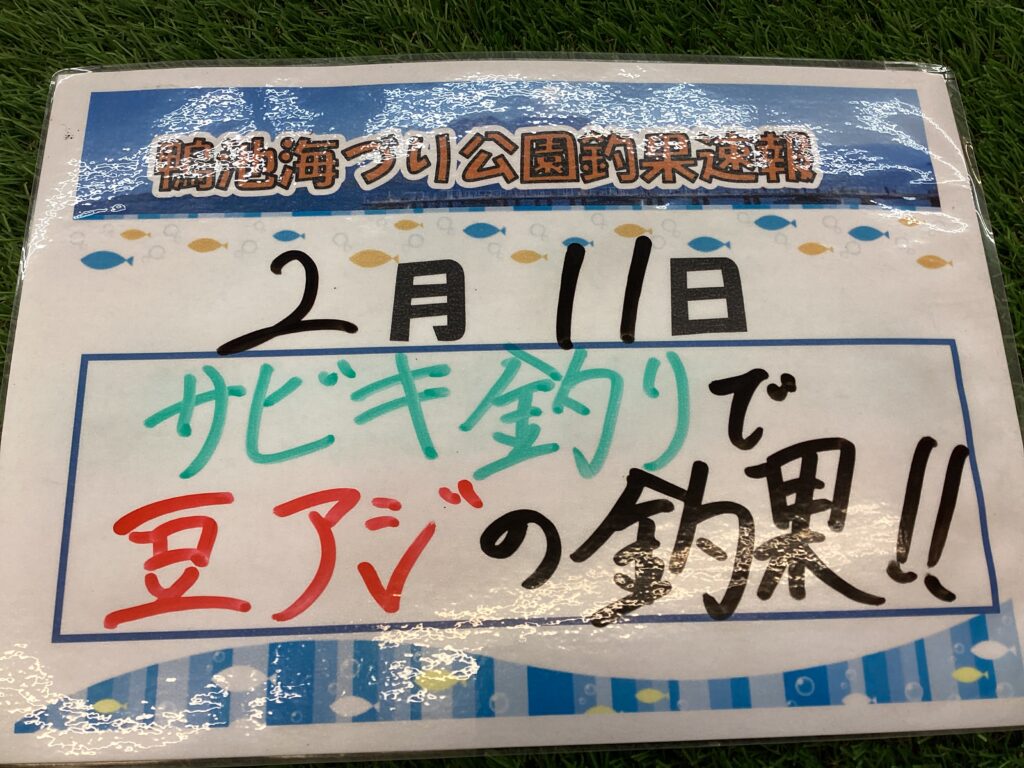 鴨池海づり公園釣果速報
2月11日
サビキ釣りで
豆アジの釣果!!